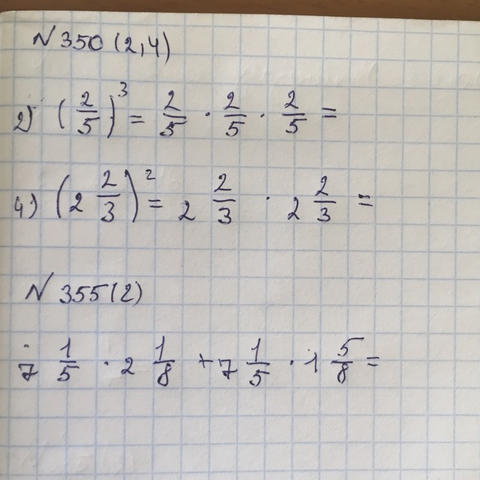 N 350 (2,4)
2) (2/5)^3 = 2/5 · 2/5 · 2/5 =
4) (2 2/3)^2 = 2 2/3 · 2 2/3 =
N 355 (2)
7 1/5 · 2 1/8 + 7 1/5 · 1 5/8 =